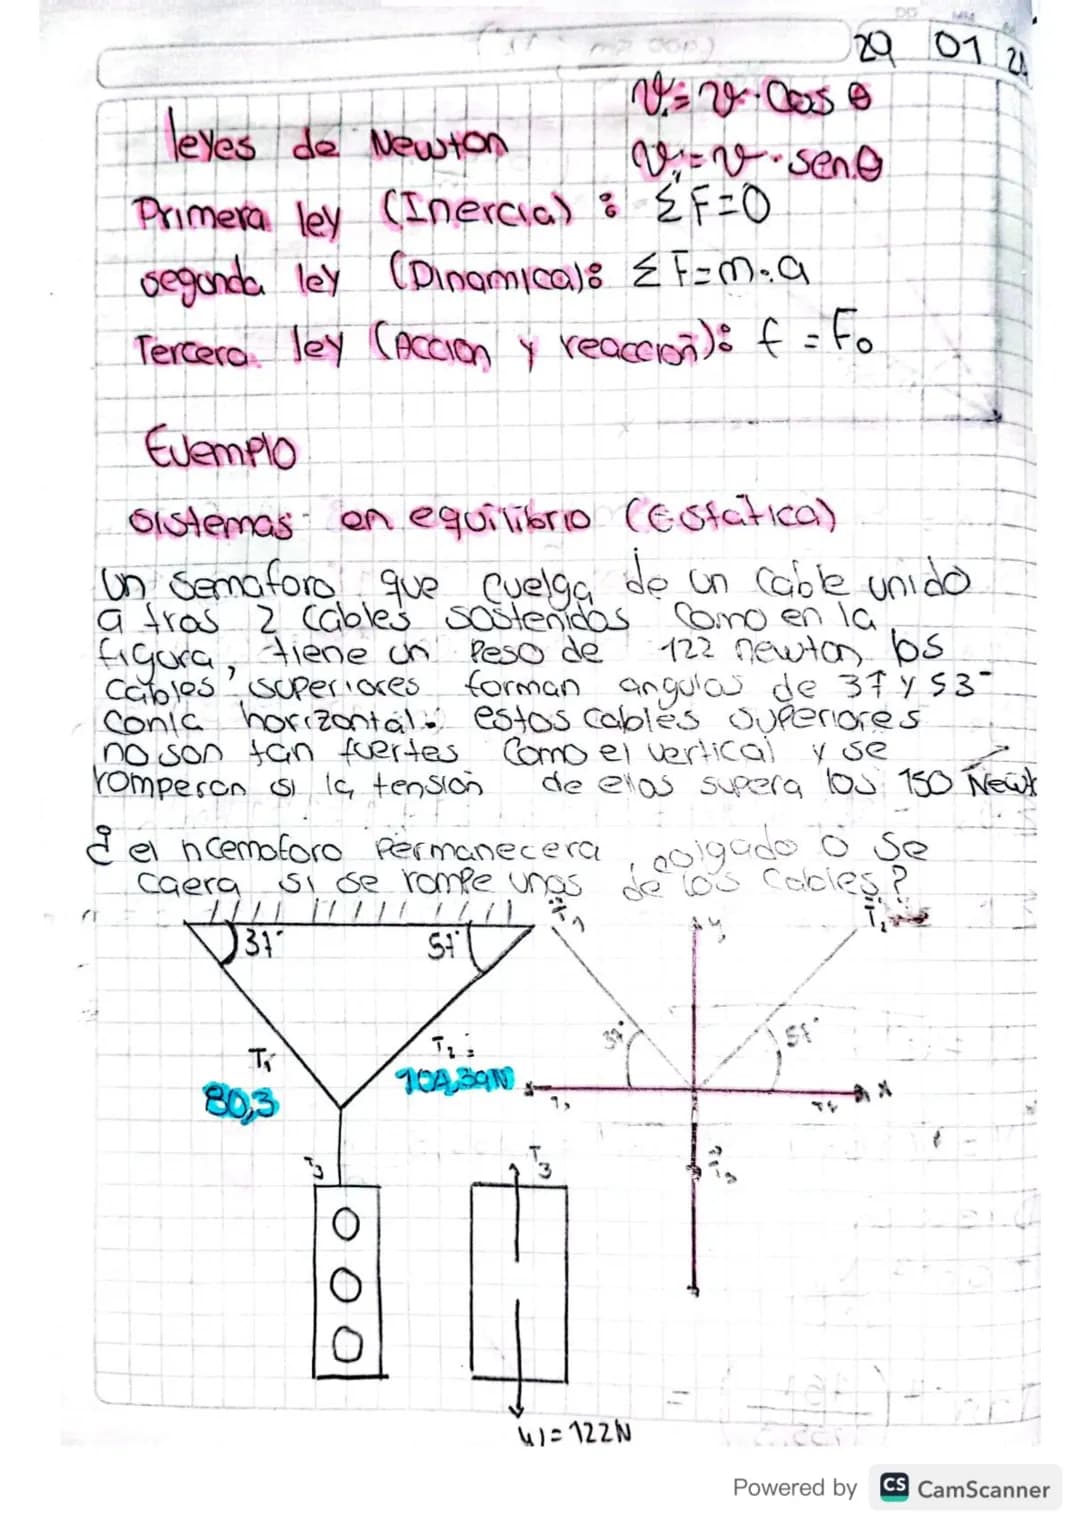 29 01 21
Vx = V · Cos θ
leyes de Newton
Vy = V · sen.θ
Primera ley (Inercia) : ΣF=0
segunda ley (Dinamica): ΣF=m.a
Tercera ley (Accion y reaccion): f = Fo
EJemplo
sistemas en equilibrio (Estática)
Un semaforo que cuelga de un cable unido
a tras 2 cables sostenidos como en la
figura, tiene un Peso de 122 newton los
cables superiores forman angulos de 37 y 53°
con la horizontal. estos cables superiores
no son tan fuertes como el vertical y se
romperan si la tensión de elas supera los 150 Newt
¿ el ncemoforo Permanecera colgado o se
caera si se rompe unas de los cables?
37° 53°
T₁ T₂
y
37° 53°
T₁ T₂ =
80,3 104,39N
x
T₃ T₃ T₃
W = 122N
Powered by CS CamScanner